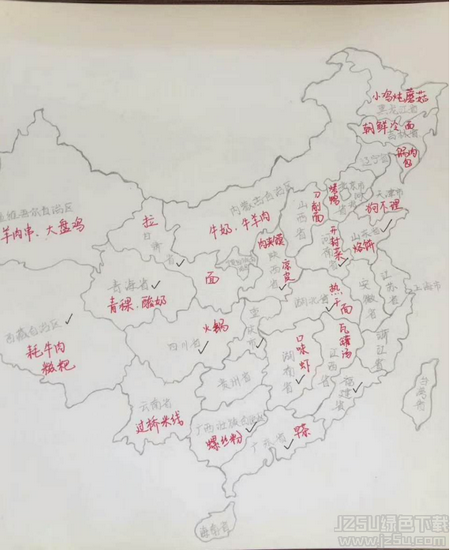 小鸡炖蘑菇
黑龙江省
朝鲜冷面
吉林省
辽宁省
锅肉
包
内蒙古自治区
牛奶、牛羊肉
山西省
刀削面
烤鸭
北京市
天津市
狗不理
维吾尔自治区
羊肉串、大盘鸡
拉
甘肃省
面
肉夹馍
陕西省
凉皮
河南省
开封菜
山东省
煎饼
青海省
青稞、酸奶
西藏自治区
牦牛肉
糍粑
四川省
火锅
重庆市
湖北省
热干面
安徽省
江苏省
上海市
浙江省
湖南省
口味虾
江西省
瓦罐汤
福建省
台湾省
贵州省
云南省
过桥米线
广西壮族自治区
螺丝粉
广东省
早茶
海南省
JZ5U绿色下载
www.jz5u.com